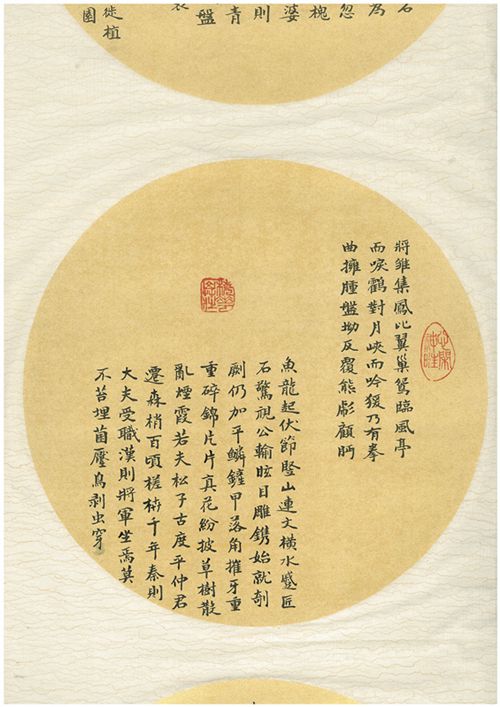 石
為
忽
槐
婆
則
青
盤
徙植
園
將雛集鳳比翼巢鴛臨風亭
而唳鶴對月峽而吟猨乃有拳
曲擁腫盤坳反覆熊彪顧眄
魚龍起伏節竪山連文橫水蹙匠
石驚視公輸眩目雕鐫始就剞
劂仍加平鱗鏟甲落角摧牙重
重碎錦片片真花紛披草樹散
亂煙霞若夫松子古度平仲君
遷森梢百頃槎枿千年秦則
大夫受職漢則將軍坐焉莫
不苔埋菌壓鳥剝虫穿